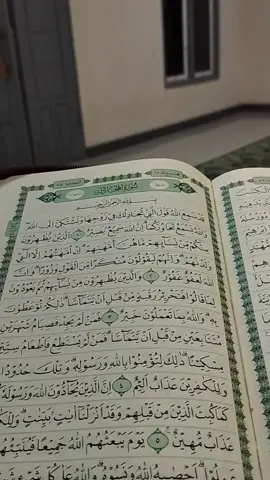 سُوْرَةُ الْمُجَادِلَةِ
بِسْمِ اللّٰهِ الرَّحْمٰنِ الرَّحِيْمِ
قَدْ سَمِعَ اللّٰهُ قَوْلَ الَّتِيْ تُجَادِلُكَ فِيْ زَوْجِهَا وَتَشْتَكِيْٓ اِلَى اللّٰهِ
وَاللّٰهُ يَسْمَعُ تَحَاوُرَكُمَاۗ اِنَّ اللّٰهَ سَمِيْعٌۢ بَصِيْرٌ ١ اَلَّذِيْنَ يُظٰهِرُوْنَ
مِنْكُمْ مِّنْ نِّسَاۤىِٕهِمْ مَّا هُنَّ اُمَّهٰتِهِمْۗ اِنْ اُمَّهٰتُهُمْ اِلَّا الّٰۤـِٔيْ
وَلَدْنَهُمْۗ وَاِنَّهُمْ لَيَقُوْلُوْنَ مُنْكَرًا مِّنَ الْقَوْلِ وَزُوْرًاۗ وَاِنَّ
اللّٰهَ لَعَفُوٌّ غَفُوْرٌ ٢ وَالَّذِيْنَ يُظٰهِرُوْنَ مِنْ نِّسَاۤىِٕهِمْ ثُمَّ يَعُوْدُوْنَ
لِمَا قَالُوْا فَتَحْرِيْرُ رَقَبَةٍ مِّنْ قَبْلِ اَنْ يَّتَمَاۤسَّاۗ ذٰلِكُمْ تُوْعَظُوْنَ
بِهٖۗ وَاللّٰهُ بِمَا تَعْمَلُوْنَ خَبِيْرٌ ٣ فَمَنْ لَّمْ يَجِدْ فَصِيَامُ شَهْرَيْنِ
مُتَتَابِعَيْنِ مِنْ قَبْلِ اَنْ يَّتَمَاۤسَّاۗ فَمَنْ لَّمْ يَسْتَطِعْ فَاِطْعَامُ سِتِّيْنَ
مِسْكِيْنًاۗ ذٰلِكَ لِتُؤْمِنُوْا بِاللّٰهِ وَرَسُوْلِهٖۗ وَتِلْكَ حُدُوْدُ اللّٰهِ
وَلِلْكٰفِرِيْنَ عَذَابٌ اَلِيْمٌ ٤ اِنَّ الَّذِيْنَ يُحَاۤدُّوْنَ اللّٰهَ وَرَسُوْلَهٗ
كَمَا كُبِتَ الَّذِيْنَ مِنْ قَبْلِهِمْ وَقَدْ اَنْزَلْنَآ اٰيٰتٍۢ بَيِّنٰتٍۗ
عَذَابٌ مُّهِيْنٌ ٥ يَوْمَ يَبْعَثُهُمُ اللّٰهُ جَمِيْعًا فَيُنَبِّئُهُمْ
عَمِلُوْاۗ اَحْصٰىهُ اللّٰهُ وَنَسُوْهُۗ وَاللّٰهُ عَلٰى كُلِّ شَيْءٍ